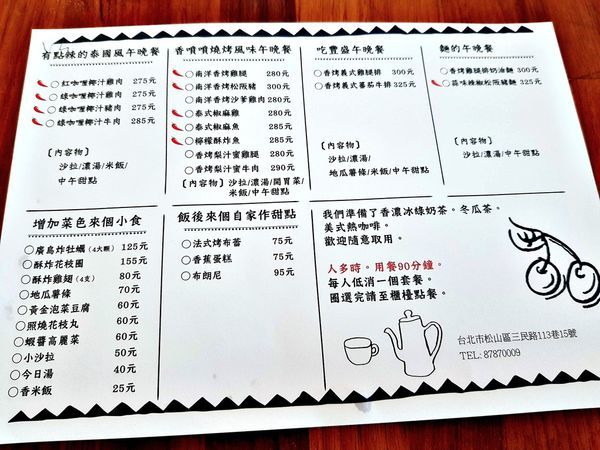 有點辣的泰國風午晚餐
○紅咖哩椰汁雞肉 275元
○綠咖哩椰汁雞肉 275元
○綠咖哩椰汁豬肉 275元
○綠咖哩椰汁牛肉 285元
〔內容物〕
沙拉/濃湯/米飯/
中午甜點
香噴噴燒烤風味午晚餐
○南洋香烤雞腿 280元
○南洋香烤松阪豬 300元
○南洋香烤沙爹雞肉 280元
○泰式椒麻雞 280元
○泰式椒麻魚 285元
○檸檬酥炸魚 285元
○香烤梨汁蜜雞腿 280元
○香烤梨汁蜜牛肉 290元
〔內容物〕沙拉/濃湯/開胃菜/
米飯/中午甜點
吃豐盛午晚餐
○香烤義式雞腿排 300元
○香烤義式蕃茄牛排 325元
〔內容物〕
沙拉/濃湯/
地瓜薯條/米飯/中午甜點
麵的午晚餐
○香烤雞腿排奶油麵 300元
○蒜味辣椒松阪豬麵 325元
〔內容物〕
沙拉/濃湯/中午甜點
增加菜色來個小食
○廣島炸牡蠣(4大顆) 125元
○酥炸花枝圈 155元
○酥炸雞翅(4支) 80元
○地瓜薯條 70元
○黃金泡菜豆腐 60元
○照燒花枝丸 60元
○蝦醬高麗菜 60元
○小沙拉 50元
○今日湯 40元
○香米飯 25元
飯後來個自家作甜點
○法式烤布蕾 75元
○香蕉蛋糕 75元
○布朗尼 95元
我們準備了香濃冰綠奶茶。冬瓜茶。
美式熱咖啡。
歡迎隨意取用。
人多時。用餐90分鐘。
每人低消一個套餐。
圈選完請至櫃檯點餐。
台北市松山區三民路113巷15號
TEL: 87870009